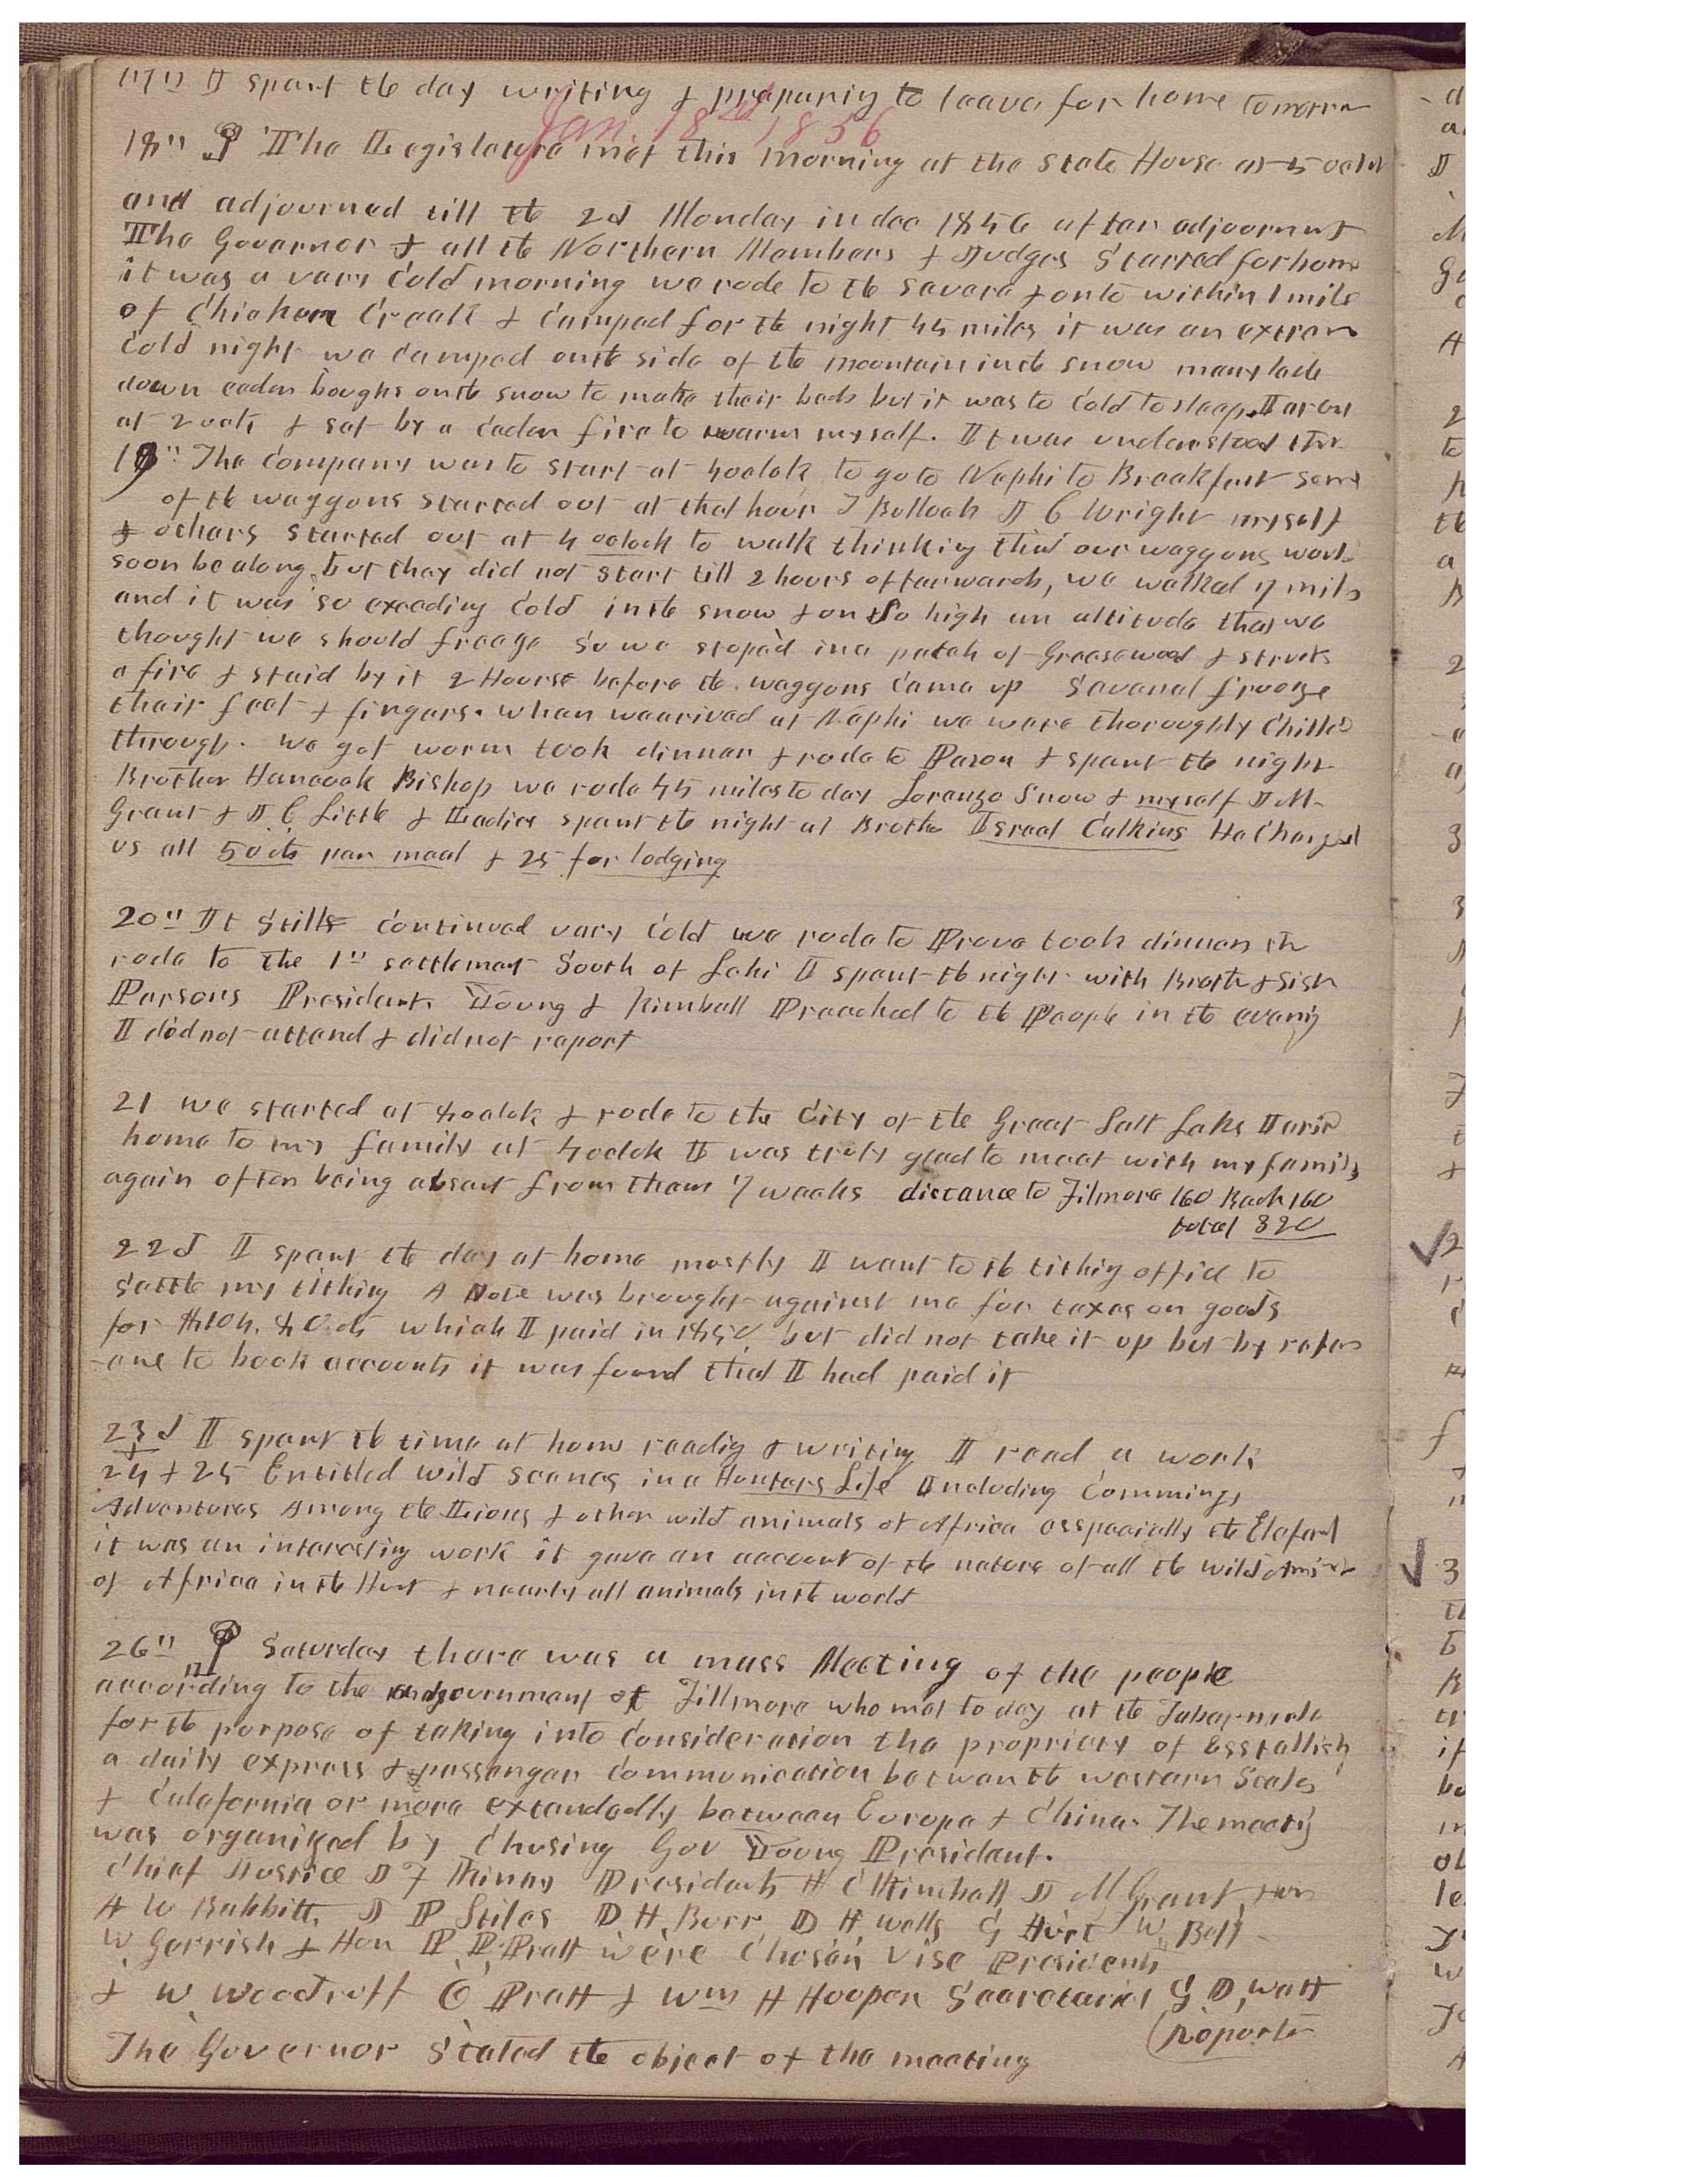 17th I spent the day writing & prepareing to leave for home tomorrow
Jan. 18th 1856
18th The Legislature met this morning at the State House at 5 oclok
and adjourned till the 2d Monday in Dec 1856 after adjournmt
The Governor & all the Northern Members & Judges Started for home
it was a vary Cold morning we rode to the Severe & on to within 1 mile
of Chicken Creek & Camped for the night 45 miles it was an extrem
Cold night we Camped on the side of the mountain in the snow many lade
down ceder boughs on the snow to make their beds but it was to Cold to sleep. I arose
at 2 oclk & sat by a Ceder fire to warm myself. It was understood that
19th The Company was to start at 4 oclok to go to Nephi to Breakfast some
of the waggons started out at that hour T Bullock J C Wright myself
& others started out at 4 oclock to walk thinking that our waggons would
soon be along, but they did not start till 2 hours afterwards, we walked 7 miles
and it was so exceding Cold in the snow & on so high an altitude that we
thought we should freeze so we stoped in a patch of Greasewood & struck
a fire & staid by it 2 Hours before the waggons Came up Several frooze
their feet & fingers. when we arived at Nephi we were thoroughly Chilled
through. we got worm took dinner & rode to Pason & spent the night
Brother Hancock Bishop we rode 45 miles to day Lorenzo Snow & myself J M
Grant & J C Little & Ladies spent the night at Brothe Israel Calkins He Charged
us all 50 cts per meal & 25 for lodging
20th It Still Continued vary Cold we rode to Provo took dinner th
rode to the 1st settlemet South of Lehi I spent the night with Broth & Sistr
Parsons President Young & Kimball Preached to the People in the evenig
I did not attend & did not report
21 we started at 8 oclok & rode to the City of the Great Salt Lake I arived
home to my family at 4 oclok I was truly glad to meet with my family
again after being absent from them 7 weeks distance to Filmore 160 Back 160
total 320
22d I spent the day at home mostly I went to the tithing office to
settle my tithing A Note was brought against me for taxes on goods
for $104.40 cts which I paid in 1850, but did not take it up but by refer
-ance to book accounts it was found that I had paid it
23d I spent the time at home readig & writing I read a work
24 & 25 Entitled wild scenes in a Hunters Life Including Commings
Adventures Among the Lions & other wild animals of Africa esspecially the Elephant
it was an interesting work it gave an account of the nature of all the wild Animals
of Africa in the Hunt & nearly all animals in the world
26th Saturday there was a mass Meeting of the people
according to the adjournment of Fillmore who met to day at the Tabernacle
for the purpose of taking into Consideration the propriety of Esstablish
a daily express & passenger Communication between the western States
& Calafornia or more extendedly between Europe & China. The meeting
was organized by Chusing Gov Young President.
Chief Justice J F Kinney Presidents H C Kimball J M Grant, Hon
A W Babbitt, J P Stiles D H Burr D H wells G Hurt W. Bell
W Gerrish & Hon P P Pratt were Chosen Vise Presidents
& W Woodruff O Pratt & Wm H Hooper Secretaries G D, watt
(Reporter
The Governor Stated the object of the meeting